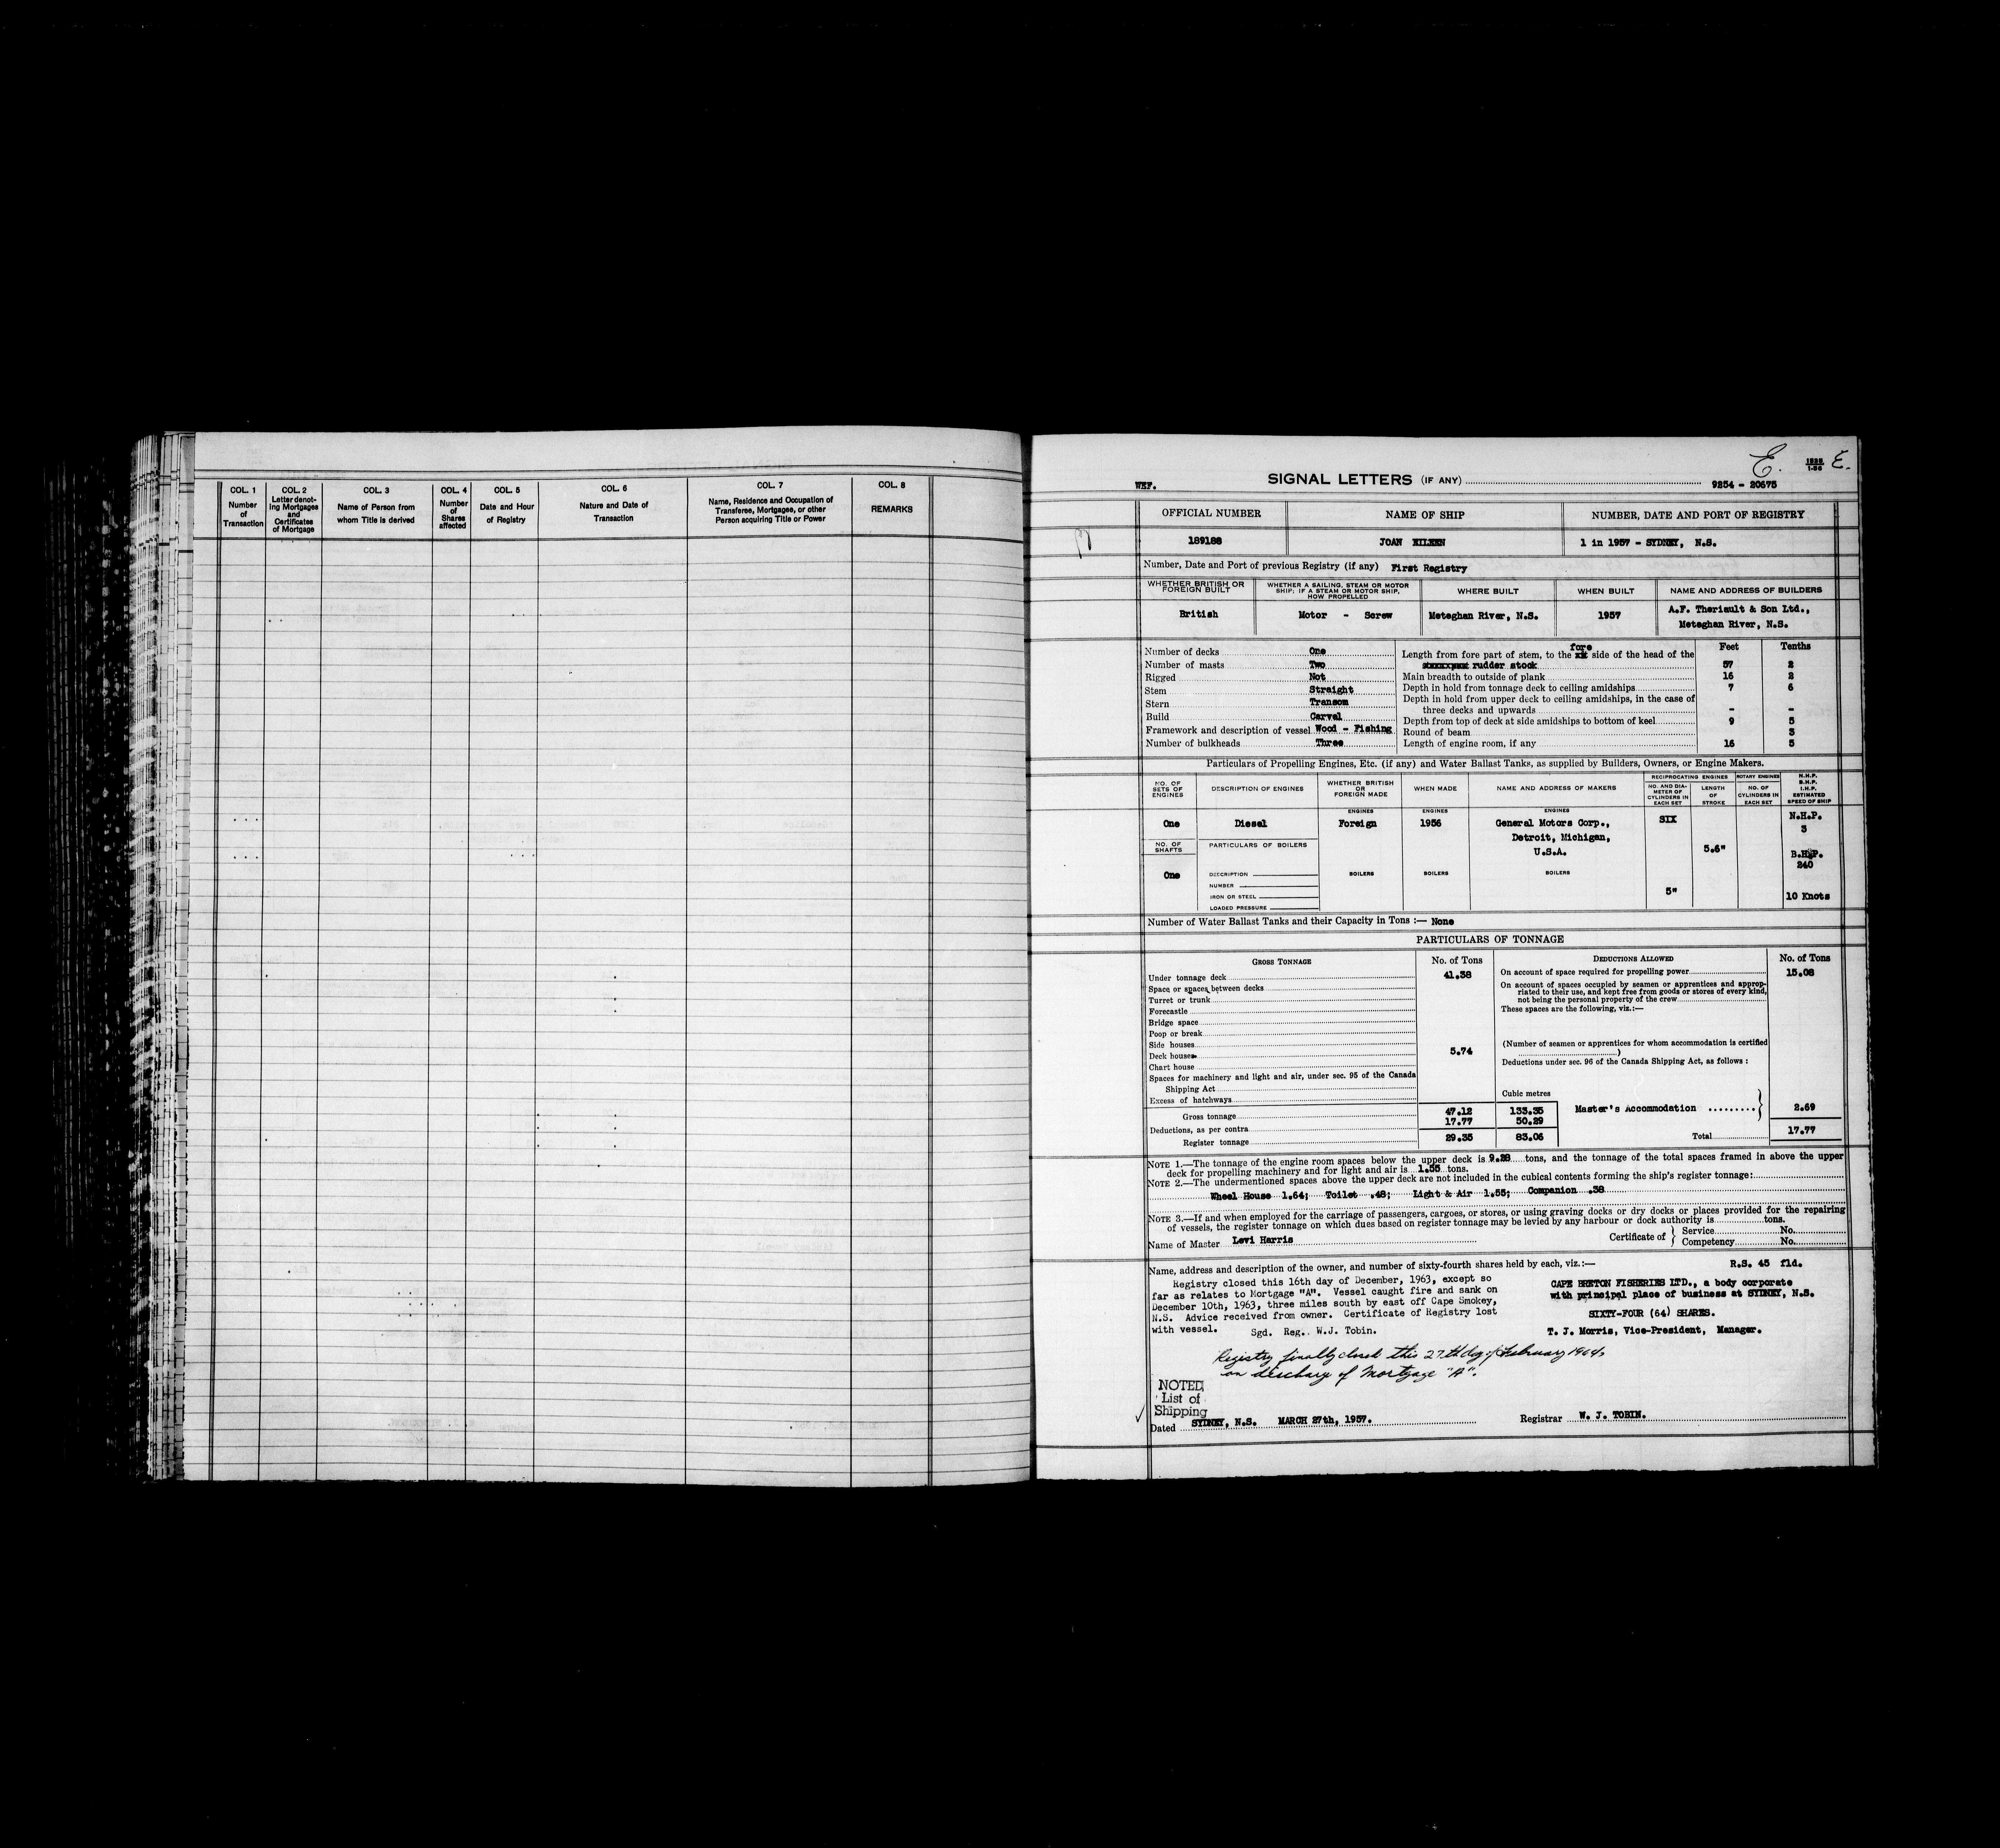 COL. 1
Number
of
Transaction
COL. 2
Letter denot-
ing Mortgages
and
Certificates
of Mortgage
COL. 3
Name of Person from
whom Title is derived
COL. 4
Number
of
Shares
affected
COL. 5
Date and Hour
of Registry
COL. 6
Nature and Date of
Transaction
COL. 7
Name, Residence and Occupation of
Transferee, Mortgagee, or other
Person acquiring Title or Power
COL. 8
REMARKS
E. E.
WEF. SIGNAL LETTERS (IF ANY) 9254 - 20675
OFFICIAL NUMBER NAME OF SHIP NUMBER, DATE AND PORT OF REGISTRY
189188 JOAN EILEEN 1 in 1957 - SYDNEY, N.S.
Number, Date and Port of previous Registry (if any) First Registry
WHETHER BRITISH OR
FOREIGN BUILT
WHETHER A SAILING, STEAM OR MOTOR
SHIP; IF A STEAM OR MOTOR SHIP,
HOW PROPELLED
WHERE BUILT WHEN BUILT NAME AND ADDRESS OF BUILDERS
British Motor - Screw Meteghan River, N.S. 1957 A.F. Theriault & Son Ltd.,
Meteghan River, N.S.
Number of decks One
Number of masts Two
Rigged Not
Stem Straight
Stern Transom
Build Carvel
Framework and description of vessel Wood - Fishing
Number of bulkheads Three
Feet Tenths
fore
Length from fore part of stem, to the side of the head of the
rudder stock 57 2
Main breadth to outside of plank 16 2
Depth in hold from tonnage deck to ceiling amidships 7 6
Depth in hold from upper deck to ceiling amidships, in the case of
three decks and upwards - -
Depth from top of deck at side amidships to bottom of keel 9 5
Round of beam 3
Length of engine room, if any 16 5
Particulars of Propelling Engines, Etc. (if any) and Water Ballast Tanks, as supplied by Builders, Owners, or Engine Makers.
NO. OF
SETS OF
ENGINES
DESCRIPTION OF ENGINES
WHETHER BRITISH
OR
FOREIGN MADE
WHEN MADE
NAME AND ADDRESS OF MAKERS
RECIPROCATING ENGINES
NO. AND DIA-
METER OF
CYLINDERS IN
EACH SET
LENGTH
OF
STROKE
ROTARY ENGINES
NO. OF
CYLINDERS IN
EACH SET
N.H.P.
B.H.P.
I.H.P.
ESTIMATED
SPEED OF SHIP
ENGINES ENGINES ENGINES
One Diesel Foreign 1956 General Motors Corp., SIX N.H.P.
Detroit, Michigan, 3
U.S.A. 5.6" B.H.P.
240
NO. OF
SHAFTS
PARTICULARS OF BOILERS
One DESCRIPTION BOILERS BOILERS BOILERS
NUMBER 5"
IRON OR STEEL 10 Knots
LOADED PRESSURE
Number of Water Ballast Tanks and their Capacity in Tons :— None
PARTICULARS OF TONNAGE
GROSS TONNAGE No. of Tons
Under tonnage deck 41.38
Space or spaces between decks
Turret or trunk
Forecastle
Bridge space
Poop or break
Side houses
Deck houses 5.74
Chart house
Spaces for machinery and light and air, under sec. 95 of the Canada
Shipping Act
Excess of hatchways
Cubic metres
Gross tonnage 47.12 133.35
Deductions, as per contra 17.77 50.29
Register tonnage 29.35 83.06
DEDUCTIONS ALLOWED No. of Tons
On account of space required for propelling power 15.08
On account of spaces occupied by seamen or apprentices and approp-
riated to their use, and kept free from goods or stores of every kind,
not being the personal property of the crew
These spaces are the following, viz.:—
(Number of seamen or apprentices for whom accommodation is certified
)
Deductions under sec. 96 of the Canada Shipping Act, as follows :
Master's Accommodation 2.69
Total 17.77
NOTE 1.—The tonnage of the engine room spaces below the upper deck is 9.28 tons, and the tonnage of the total spaces framed in above the upper
deck for propelling machinery and for light and air is 1.55 tons.
NOTE 2.—The undermentioned spaces above the upper deck are not included in the cubical contents forming the ship's register tonnage:
Wheel House 1.64; Toilet .48; Light & Air 1.55; Companion .38
NOTE 3.—If and when employed for the carriage of passengers, cargoes, or stores, or using graving docks or dry docks or places provided for the repairing
of vessels, the register tonnage on which dues based on register tonnage may be levied by any harbour or dock authority is tons.
Name of Master Levi Harris
Certificate of } Service No.
Competency No.
Name, address and description of the owner, and number of sixty-fourth shares held by each, viz.:— R.S. 45 fld.
Registry closed this 16th day of December, 1963, except so
far as relates to Mortgage "A". Vessel caught fire and sank on
December 10th, 1963, three miles south by east off Cape Smokey,
N.S. Advice received from owner. Certificate of Registry lost
with vessel. Sgd. Reg. W.J. Tobin.
CAPE BRETON FISHERIES LTD., a body corporate
with principal place of business at SYDNEY, N.S.
SIXTY-FOUR (64) SHARES.
T. J. Morris, Vice-President, Manager.
Registry finally closed this 27th day of February 1964,
on discharge of Mortgage "A".
NOTED
List of
Shipping
Dated SYDNEY, N.S. MARCH 27th, 1957. Registrar W. J. TOBIN.